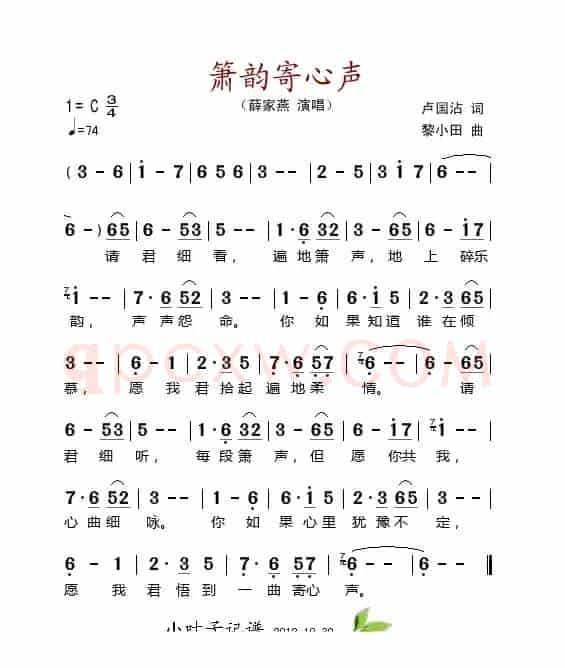 箫韵寄心声
1=C 3/4
（薛家燕 演唱）
卢国沾 词
♩=74
黎小田 曲
(3 - 6 | i - 7 | 6 5 6 | 3 - - | 2 - 5 | 3 i 7 | 6 - - |
6 - ) 65 | 6 - 53 | 5 - - | 1· 6 32 | 3 - - | 6 - i7 |
请 君 细 看， 遍 地 箫 声，地 上 碎乐
7 i - - | 7· 6 52 | 3 - - | 1 - 6 | 6· i 5 | 2· 3 65 |
韵， 声 声怨 命。 你 如 果 知道 谁 在倾
3 - - | 6 - 1 | 2· 3 5 | 7· 6 57 | 7 6 - - | 6 - 65 |
慕， 愿 我 君 拾起 遍 地柔 情。 请
6 - 53 | 5 - - | 1· 6 32 | 3 - - | 6 - i7 | 7 i - - |
君 细 听， 每 段 箫 声，但 愿 你共 我，
7· 6 52 | 3 - - | 1 - 6 | 6· i 5 | 2· 3 65 | 3 - - |
心 曲细 咏。 你 如 果 心里 犹 豫不 定，
6 - 1 | 2· 3 5 | 7· 6 57 | 7 6 - - | 6 - - ‖
愿 我 君 悟到 一 曲寄心 声。
qpcxw.COM
小叶子记谱 2012.10.30